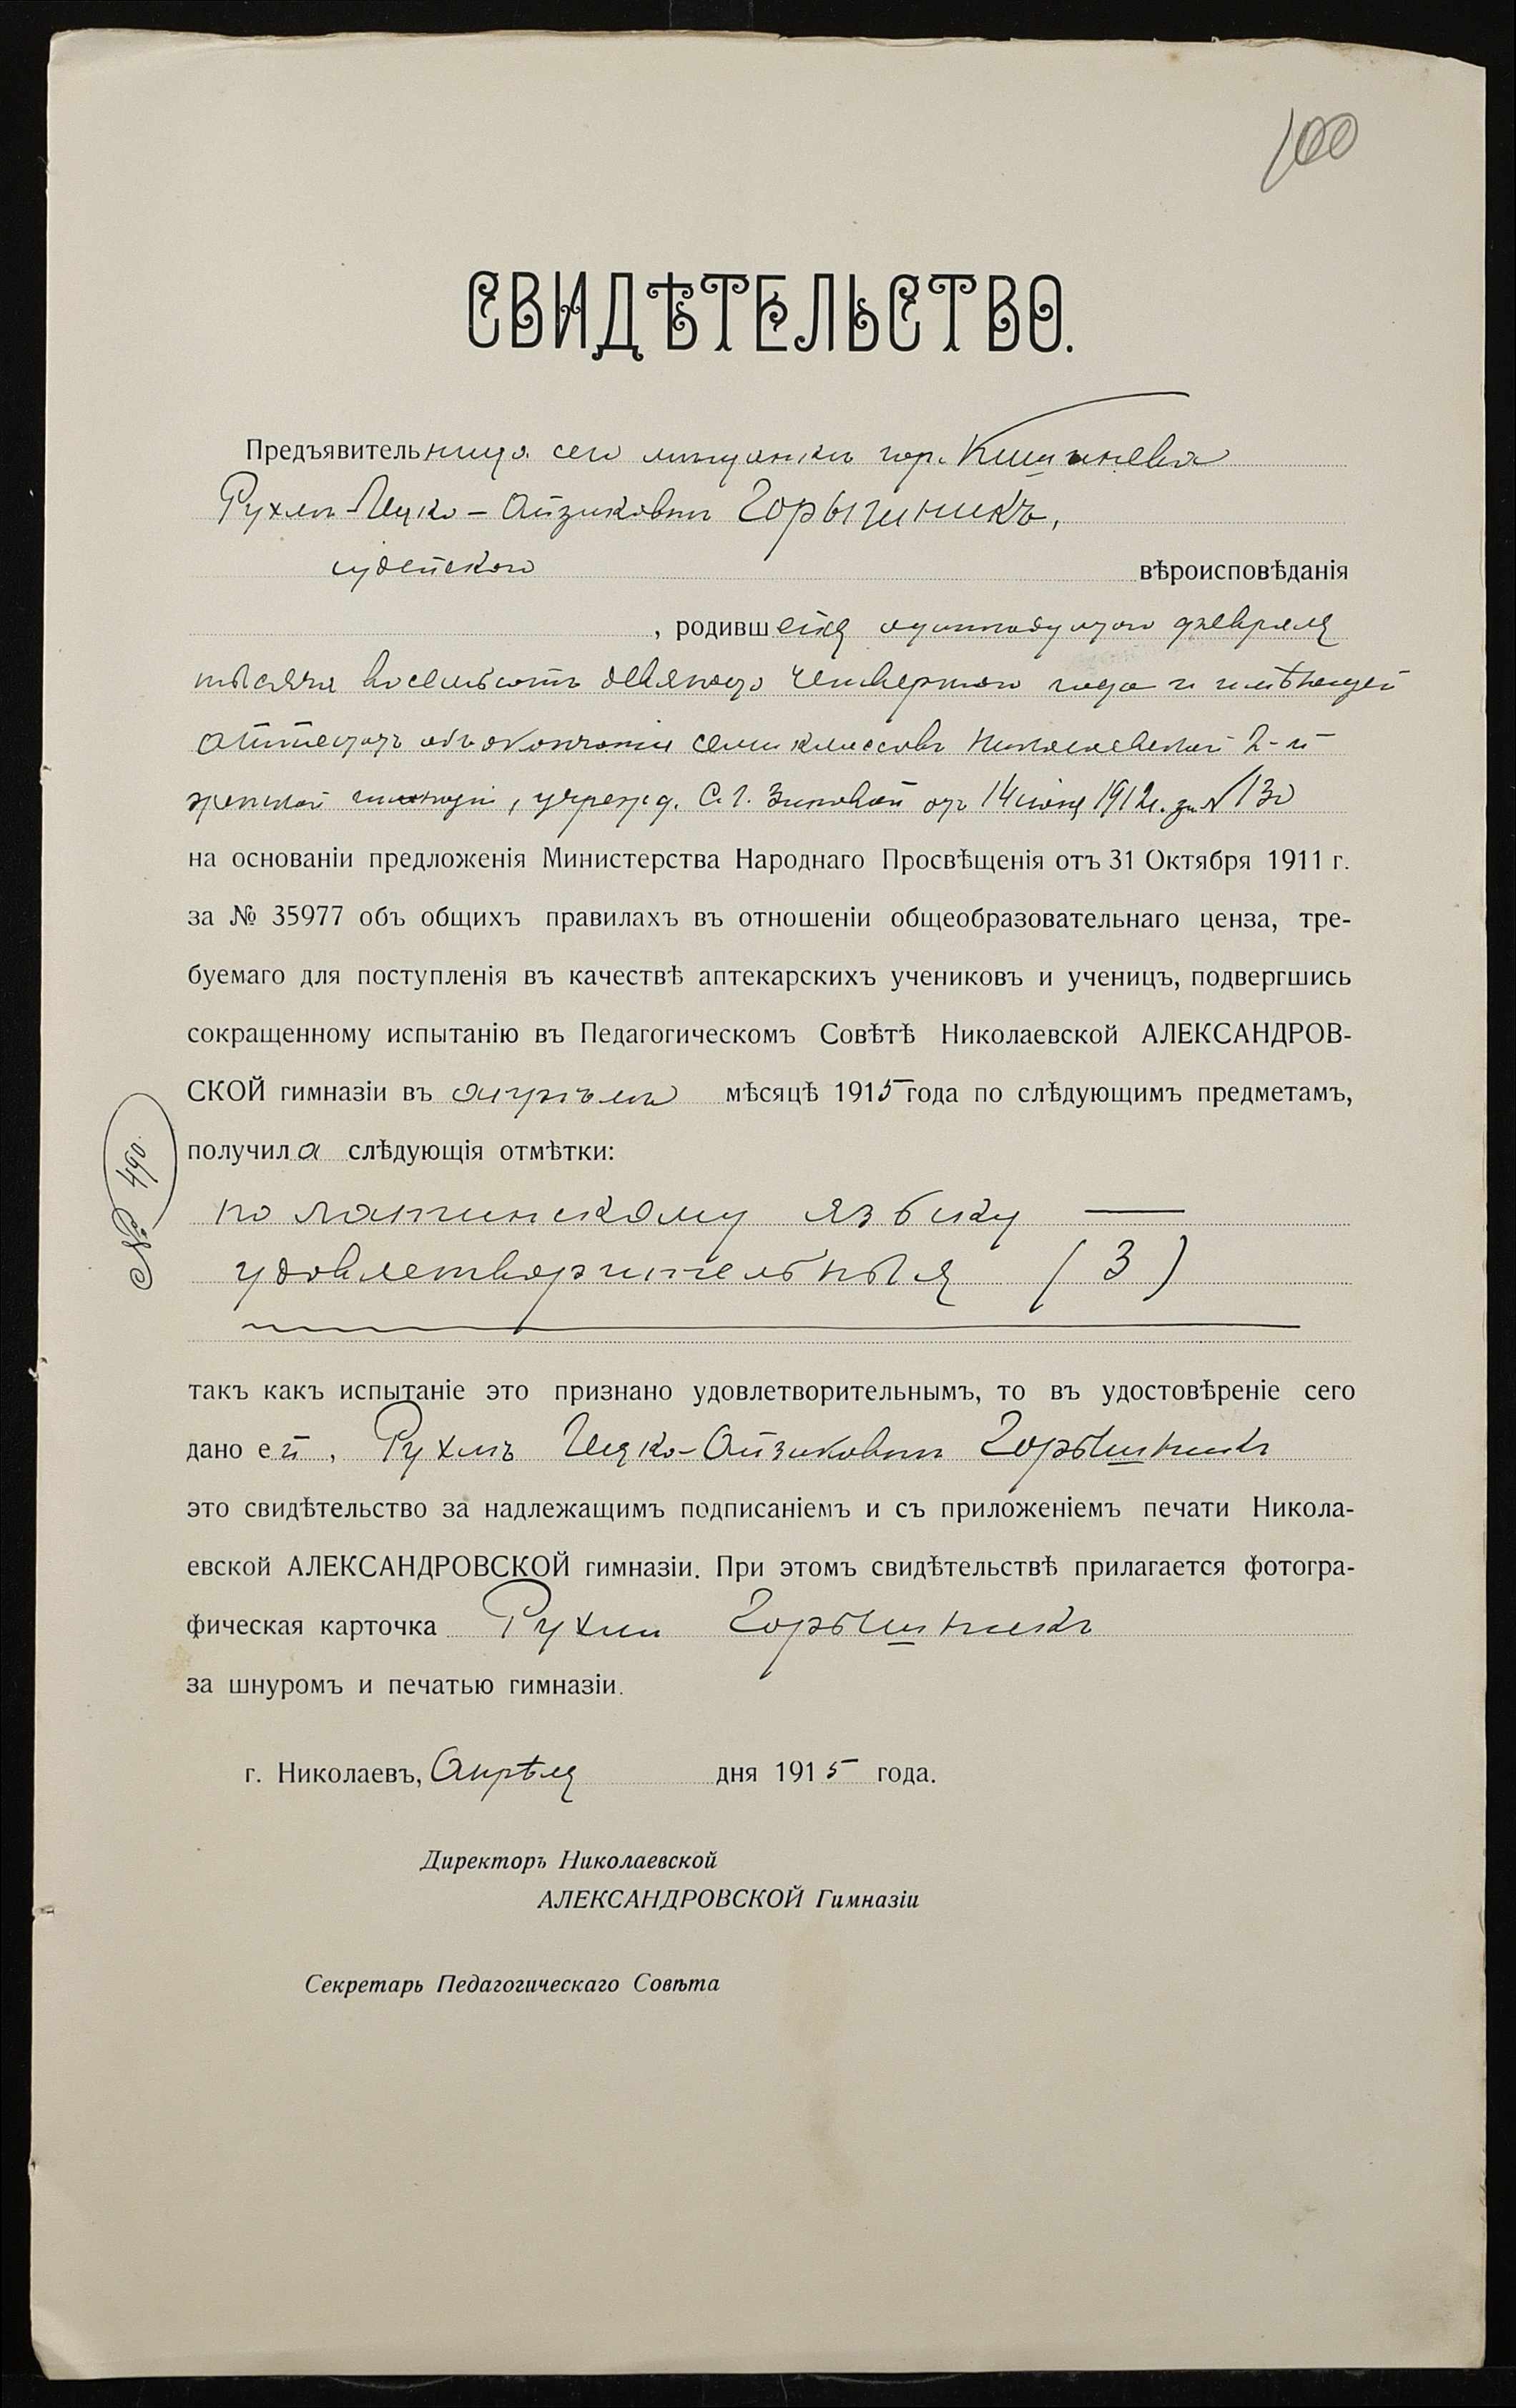 100
СВИДѢТЕЛЬСТВО.
Предъявительница сего мѣщанка гор. Кишинева
Рухля Ицко-Айзиковна Горышникъ,
іудейскаго вѣроисповѣданія
, родившейся одиннадцатаго февраля
тысяча восемьсотъ девяносто четвертаго года и имѣющей
аттестатъ объ окончаніи семи классовъ Николаевской 2-й
женской гимназіи, учрежд. С. І. от 14 іюня 1912 г. за № 130
на основаніи предложенія Министерства Народнаго Просвѣщенія отъ 31 Октября 1911 г.
за № 35977 объ общихъ правилахъ въ отношеніи общеобразовательнаго ценза, тре-
буемаго для поступленія въ качествѣ аптекарскихъ учениковъ и ученицъ, подвергшись
сокращенному испытанію въ Педагогическомъ Совѣтѣ Николаевской АЛЕКСАНДРОВ-
СКОЙ гимназіи въ апрѣлѣ мѣсяцѣ 1915 года по слѣдующимъ предметамъ,
получила слѣдующія отмѣтки:
№ 490.
по латинскому языку —
удовлетворительныя (3)
такъ какъ испытаніе это признано удовлетворительнымъ, то въ удостовѣреніе сего
дано ей, Рухлѣ Ицко-Айзиковнѣ Горышникъ
это свидѣтельство за надлежащимъ подписаніемъ и съ приложеніемъ печати Никола-
евской АЛЕКСАНДРОВСКОЙ гимназіи. При этомъ свидѣтельствѣ прилагается фотогра-
фическая карточка Рухли Горышникъ
за шнуромъ и печатью гимназіи.
г. Николаевъ, Апрѣля дня 1915 года.
Директоръ Николаевской
АЛЕКСАНДРОВСКОЙ Гимназіи
Секретарь Педагогическаго Совѣта